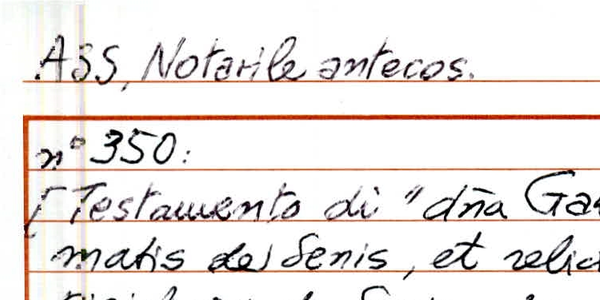 ASS, Notarile antecos.
n° 350:
[Testamento di "dña
matis de Senis, et